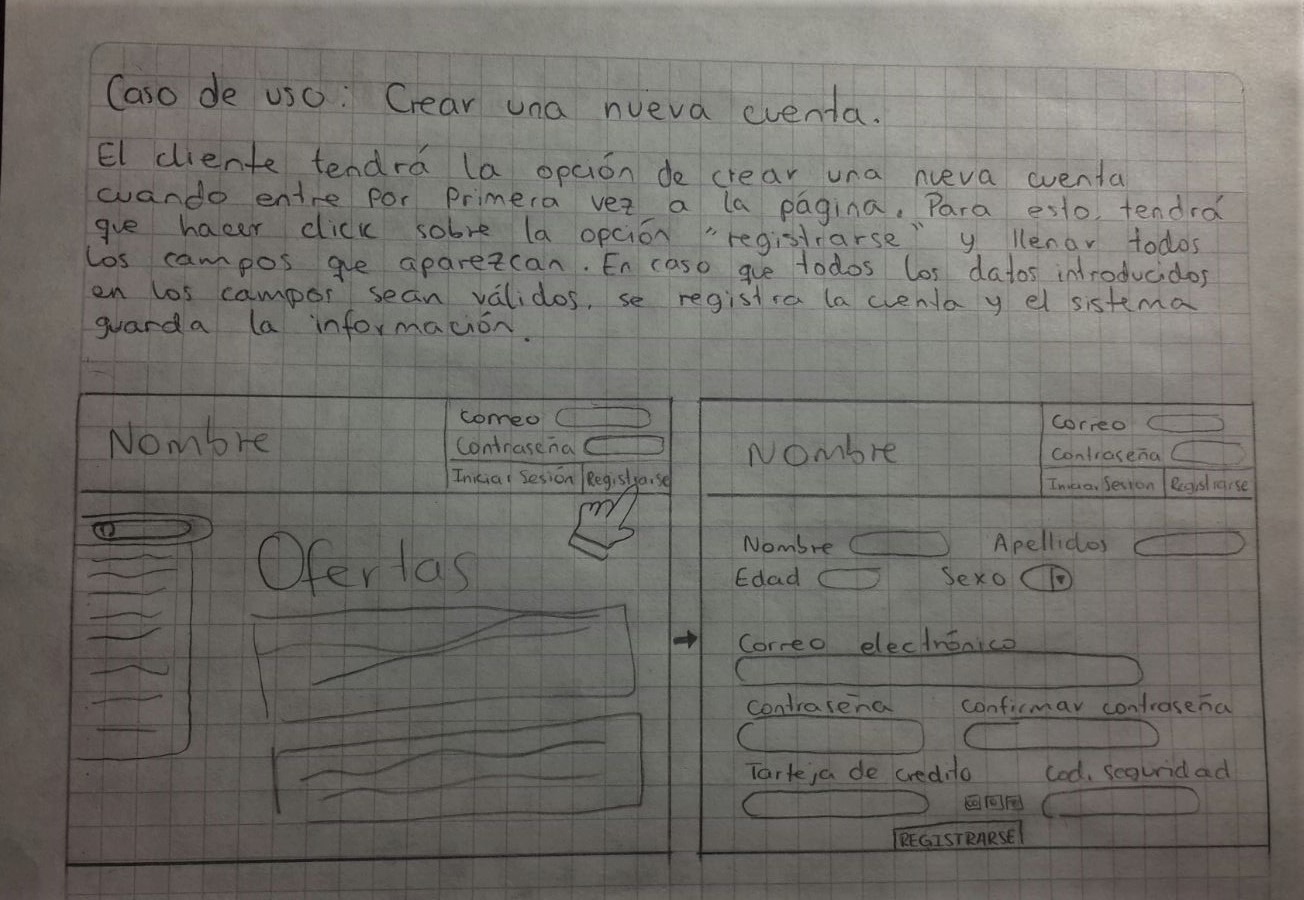 Caso de uso: Crear una nueva cuenta.
El cliente tendrá la opción de crear una nueva cuenta
cuando entre por primera vez a la página. Para esto, tendrá
que hacer click sobre la opción "registrarse" y llenar todos
los campos que aparezcan. En caso que todos los datos introducidos
en los campos sean válidos, se registra la cuenta y el sistema
guarda la información.
Nombre
Correo
Contraseña
Iniciar Sesión Registrarse
Ofertas
Nombre
Correo
Contraseña
Iniciar Sesion Registrarse
Nombre Apellidos
Edad Sexo
Correo electrónico
Contraseña Confirmar contraseña
Tarteja de credito Cod. seguridad
REGISTRARSE